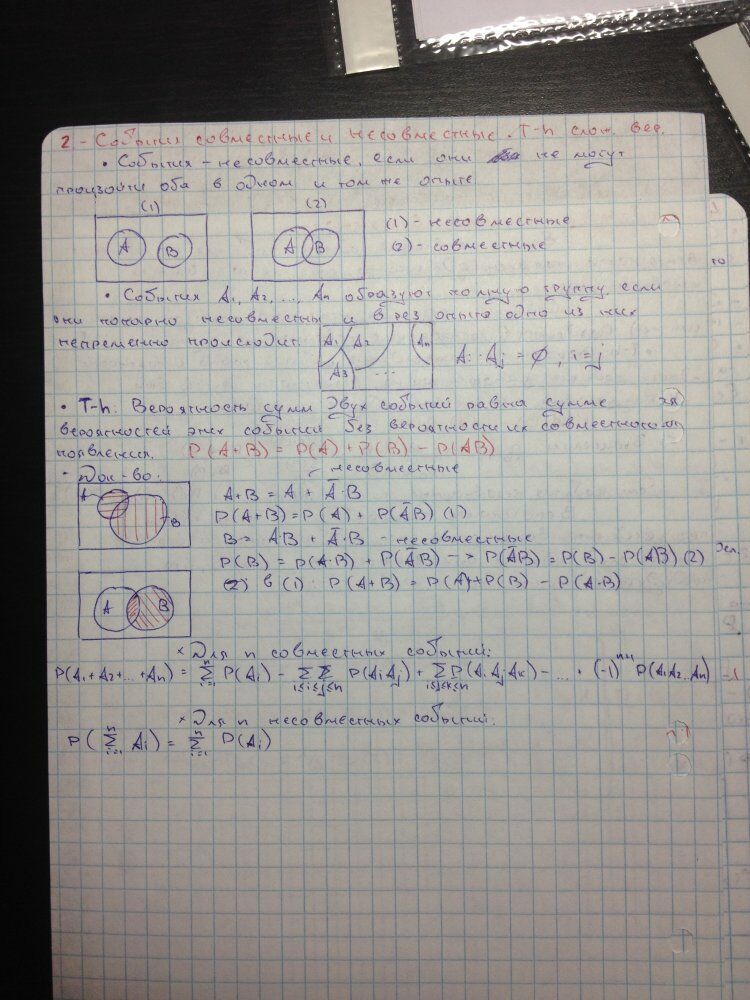 2 - События совместные и несовместные. Т-h слож. вер.
• События - несовместные, если они не могут
произойти оба в одном и том же опыте
(1) (2)
A B A B
(1) - несовместные
(2) - совместные
• События A₁, A₂, ..., Aₙ образуют полную группу если
они попарно несовместны и в рез опыта одно из них
непременно происходит.
A₁ A₂ Aₙ A₃ ...
Aᵢ · Aⱼ = ∅, i = j
• Т-h: Вероятность сумм двух событий равна сумме
вероятностей этих событий без вероятности их совместного
появления. P(A+B) = P(A) + P(B) - P(AB)
• Док-во:
несовместные
A B
A+B = A + Ā·B
P(A+B) = P(A) + P(ĀB) (1)
B = AB + Ā·B - несовместные
P(B) = P(A·B) + P(ĀB) -> P(ĀB) = P(B) - P(AB) (2)
A B
(2) в (1): P(A+B) = P(A) + P(B) - P(A·B)
× Для n совместных событий:
P(A₁+A₂+...+Aₙ) = ∑ᵢ₌₁ⁿ P(Aᵢ) - ∑∑ 1≤i≤j≤n P(AᵢAⱼ) + ∑ i≤j≤k≤n P(AᵢAⱼAₖ) - ... · (-1)ⁿ⁺¹ P(A₁A₂...Aₙ)
× Для n несовместных событий:
P(∑ᵢ₌₁ⁿ Aᵢ) = ∑ᵢ₌₁ⁿ P(Aᵢ)